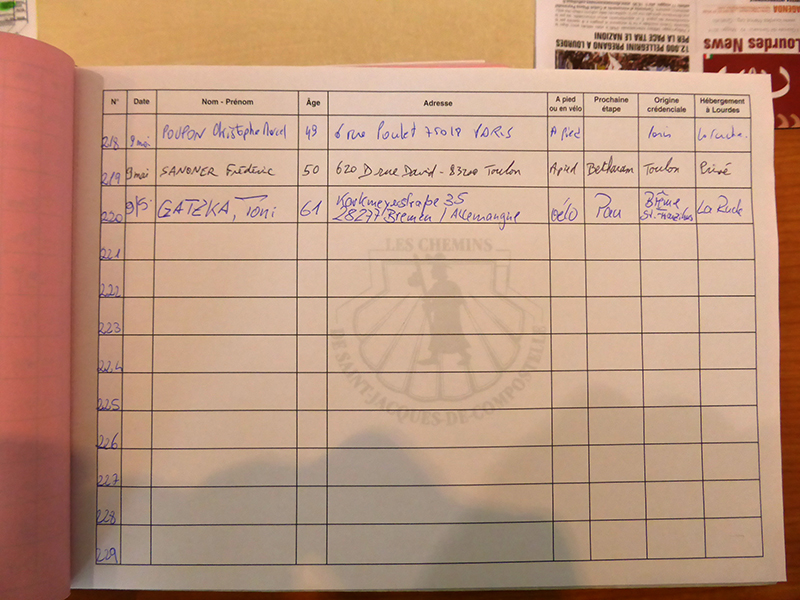 12.000 PELLEGRINI PREGANO A LOURDES
PER LA PACE TRA LE NAZIONI
AGENDA
Lourdes News
N° Date Nom - Prénom Âge Adresse A pied ou en vélo Prochaine étape Origine crédenciale Hébergement à Lourdes
218 9 mai POUPON Christophe Marcel 49 6 rue Poulet 75018 PARIS A pied Paris La Ruche.
219 9 mai SANDNER Frédéric 50 620 D rue David - 83200 Toulon A pied Betharram Toulon Privé
220 9/5 GATZKA, Toni 61 Korkmeyerstraße 35
28277 Bremen / Allemangne vélo Pau Brême La Ruche
221
222
223
224
225
226
227
228
229
LES CHEMINS
DE SAINT-JACQUES-DE-COMPOSTELLE